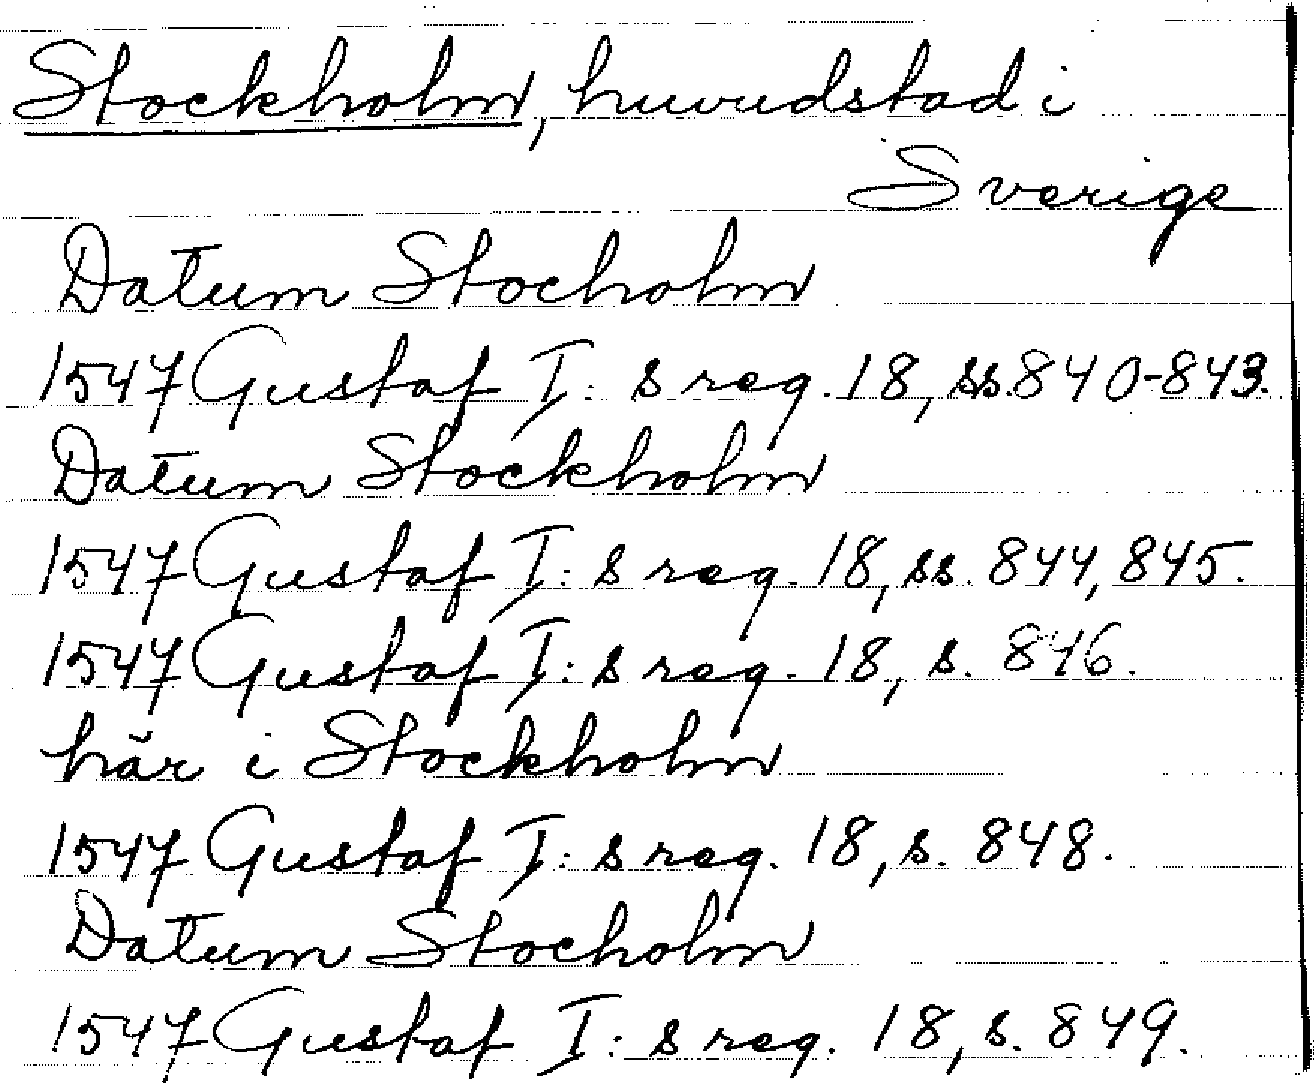 Stockholm, huvudstad i
Sverige
Datum Stocholm
1547 Gustaf I:s reg. 18, ss. 840-843.
Datum Stockholm
1547 Gustaf I:s reg. 18, ss. 844, 845.
1547 Gustaf I:s reg. 18, s. 846.
här i Stockholm
1547 Gustaf I:s reg. 18, s. 848.
Datum Stocholm
1547 Gustaf I:s reg. 18, s. 849.